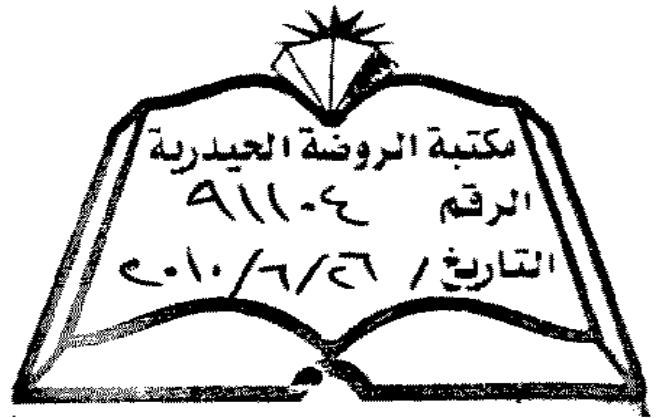 مكتبة الروضة الحيدرية
الرقم ٩١١٠٤
التاريخ / ٢٦/٦/٢٠١٠